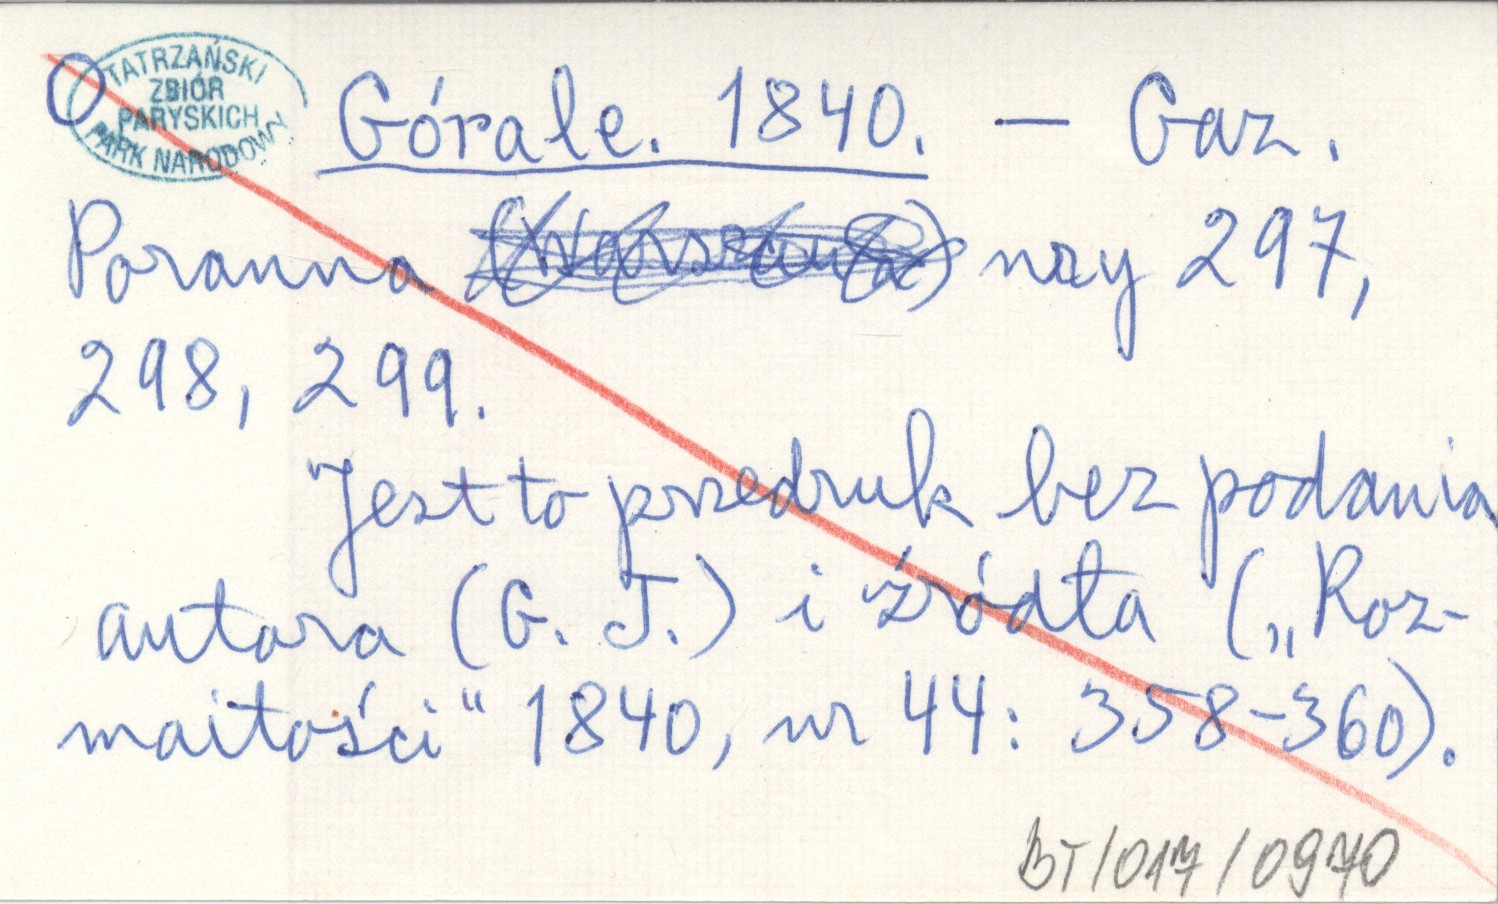 O
TATRZAŃSKI
ZBIÓR
PARYSKICH
PARK NARODOWY
Górale. 1840. — Gaz.
Poranna (Warszawska) nry 297,
298, 299.
Jest to przedruk bez podania
autora (G. J.) i źródła („Roz-
maitości“ 1840, nr 44: 358-360).
BT/017/0970